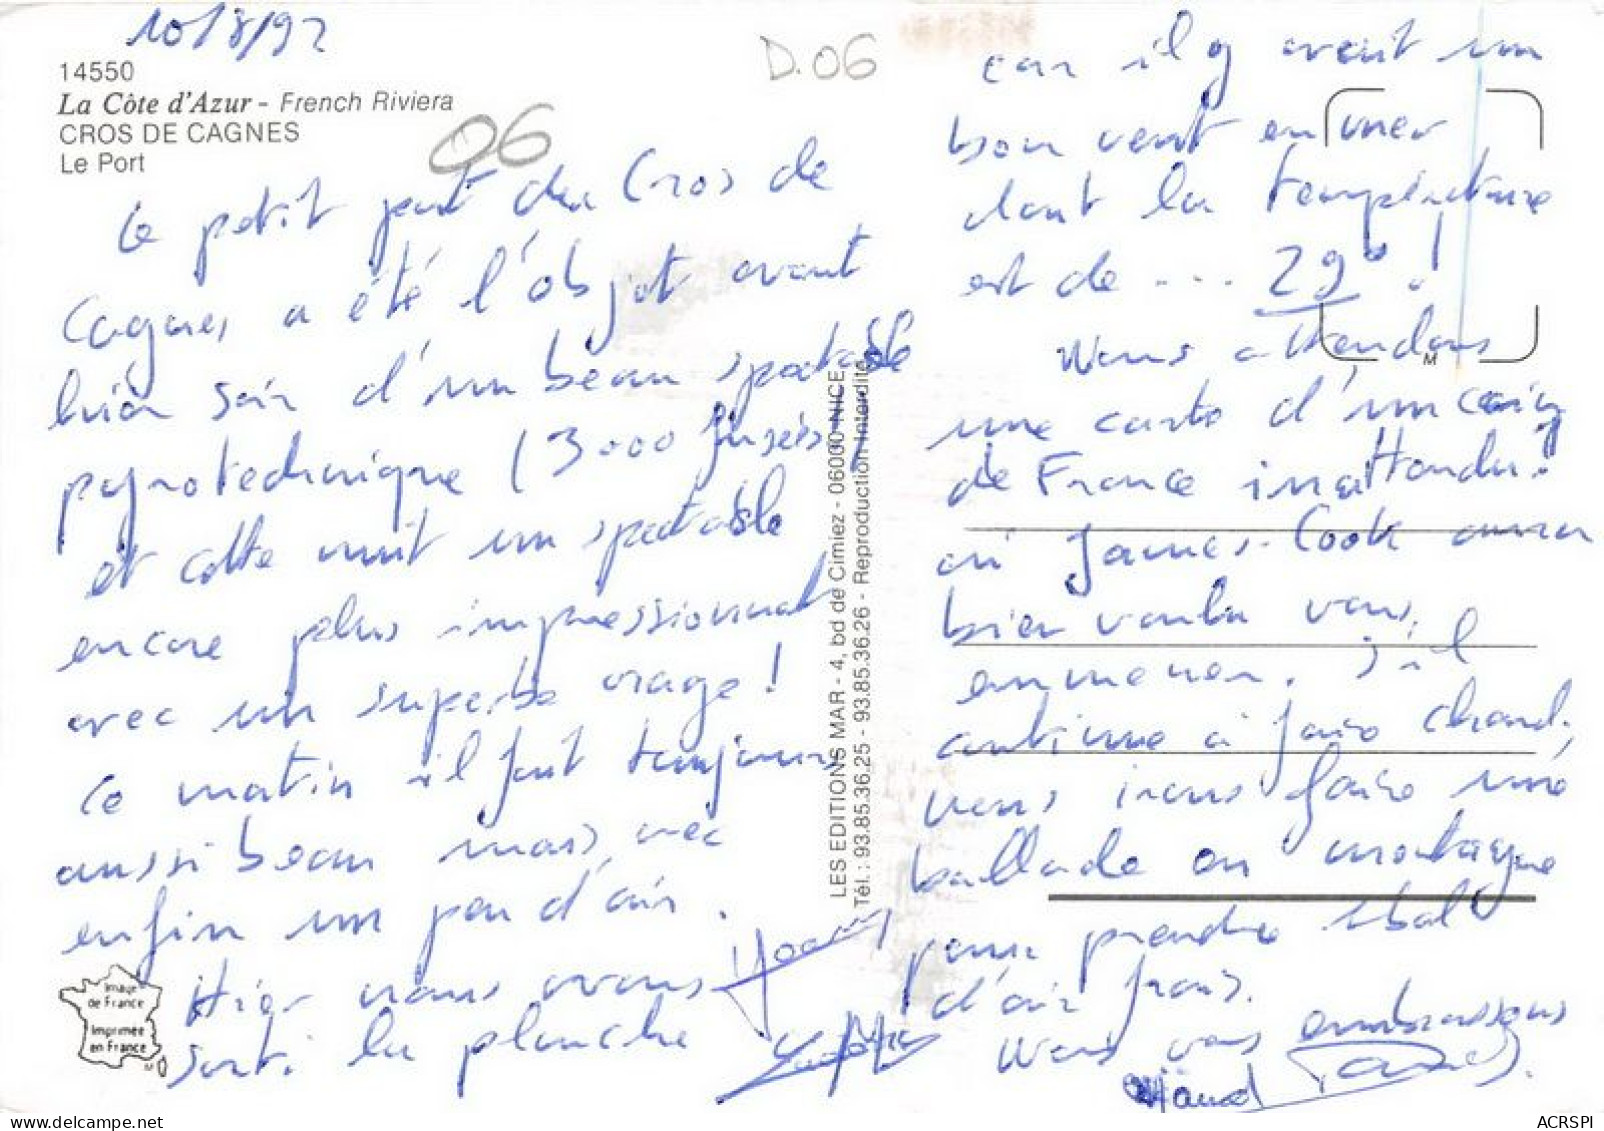 10/8/92
14550
La Côte d'Azur - French Riviera
CROS DE CAGNES
Le Port
06
D.06
Ce petit port du Cros de
Cagnes a été l'objet avant
hier soir d'un beau spectacle
pyrotechnique (3000 fusées)
et cette nuit un spectacle
encore plus impressionnant
avec un superbe orage !
Ce matin il fait toujours
aussi beau mais avec
enfin un peu d'air.
Hier nous avons
sorti la planche
car il y avait un
bon vent en mer
dont la température
est de ... 29° !
Nous attendons
une carte d'un coin
de France inattendu
où James-Cook aura
bien voulu vous
emmener. S'il
continue à faire chaud,
nous irons faire une
ballade en montagne
pour prendre 1 bol
d'air frais.
Nous vous embrassons
LES EDITIONS MAR - 4, bd de Cimiez - 06000 NICE
Tél. : 93.85.36.25 - 93.85.36.26 - Reproduction Interdite
M
Image
de France
Imprimée
en France
ACRSPI